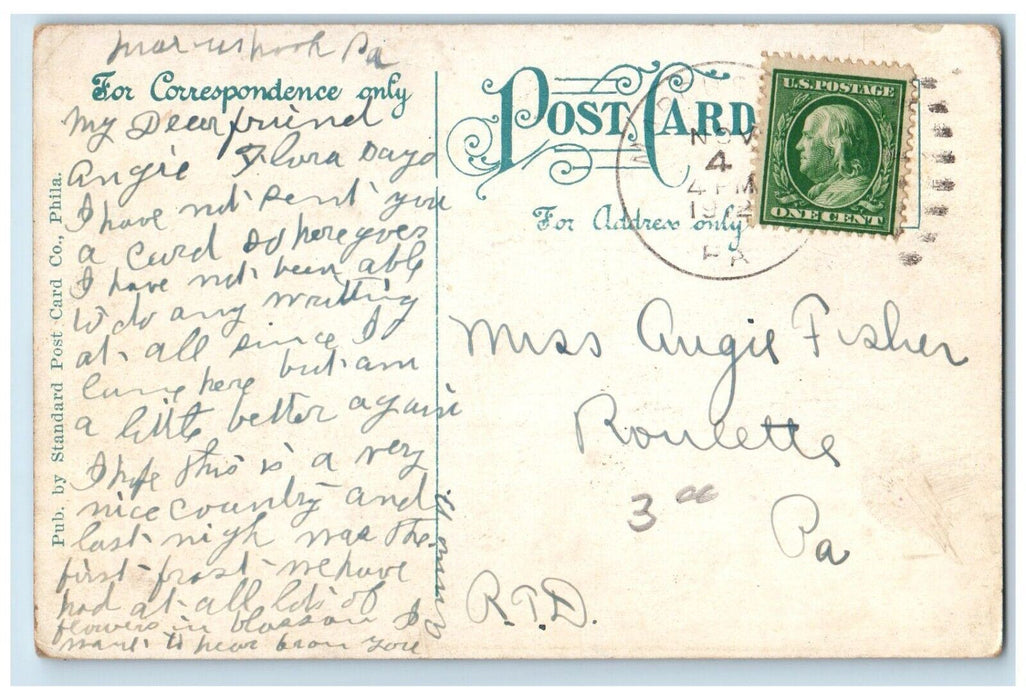 Marcus hook Pa
For Correspondence only
My Dear friend
Angie Flora Days
I have not sent you
a Card so here goes
I have not been able
to do any writting
at all since I
came here but am
a little better again
I hope this is a very
nice country and
last nigh was the
first frost we have
had at all lots of
flowers in blosson I
want to hear from you
Pub. by Standard Post Card Co., Phila.
POST CARD
For Address only
NOV
4
4 PM
1912
PA
U.S. POSTAGE
ONE CENT
Miss Angie Fisher
Roulette
3 ct
Pa
R.F.D.